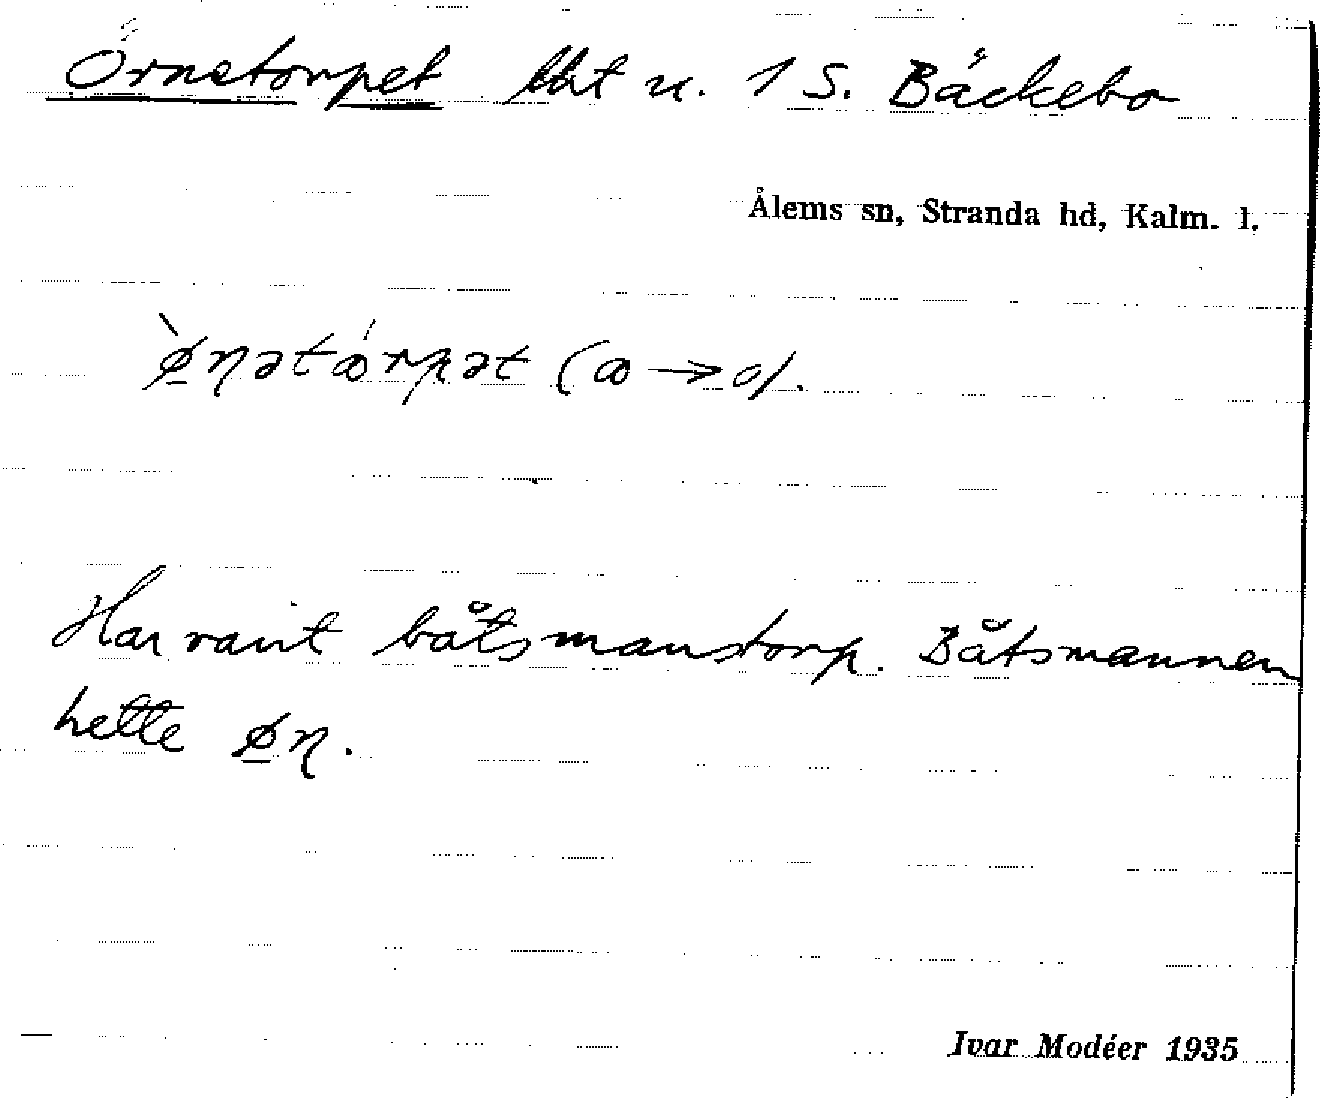 Örnetorpet lht u. 1 S. Bäckebo
Ålems sn, Stranda hd, Kalm. l.
Har varit båtsmanstorp. Båtsmannen
hette
Ivar Modéer 1935